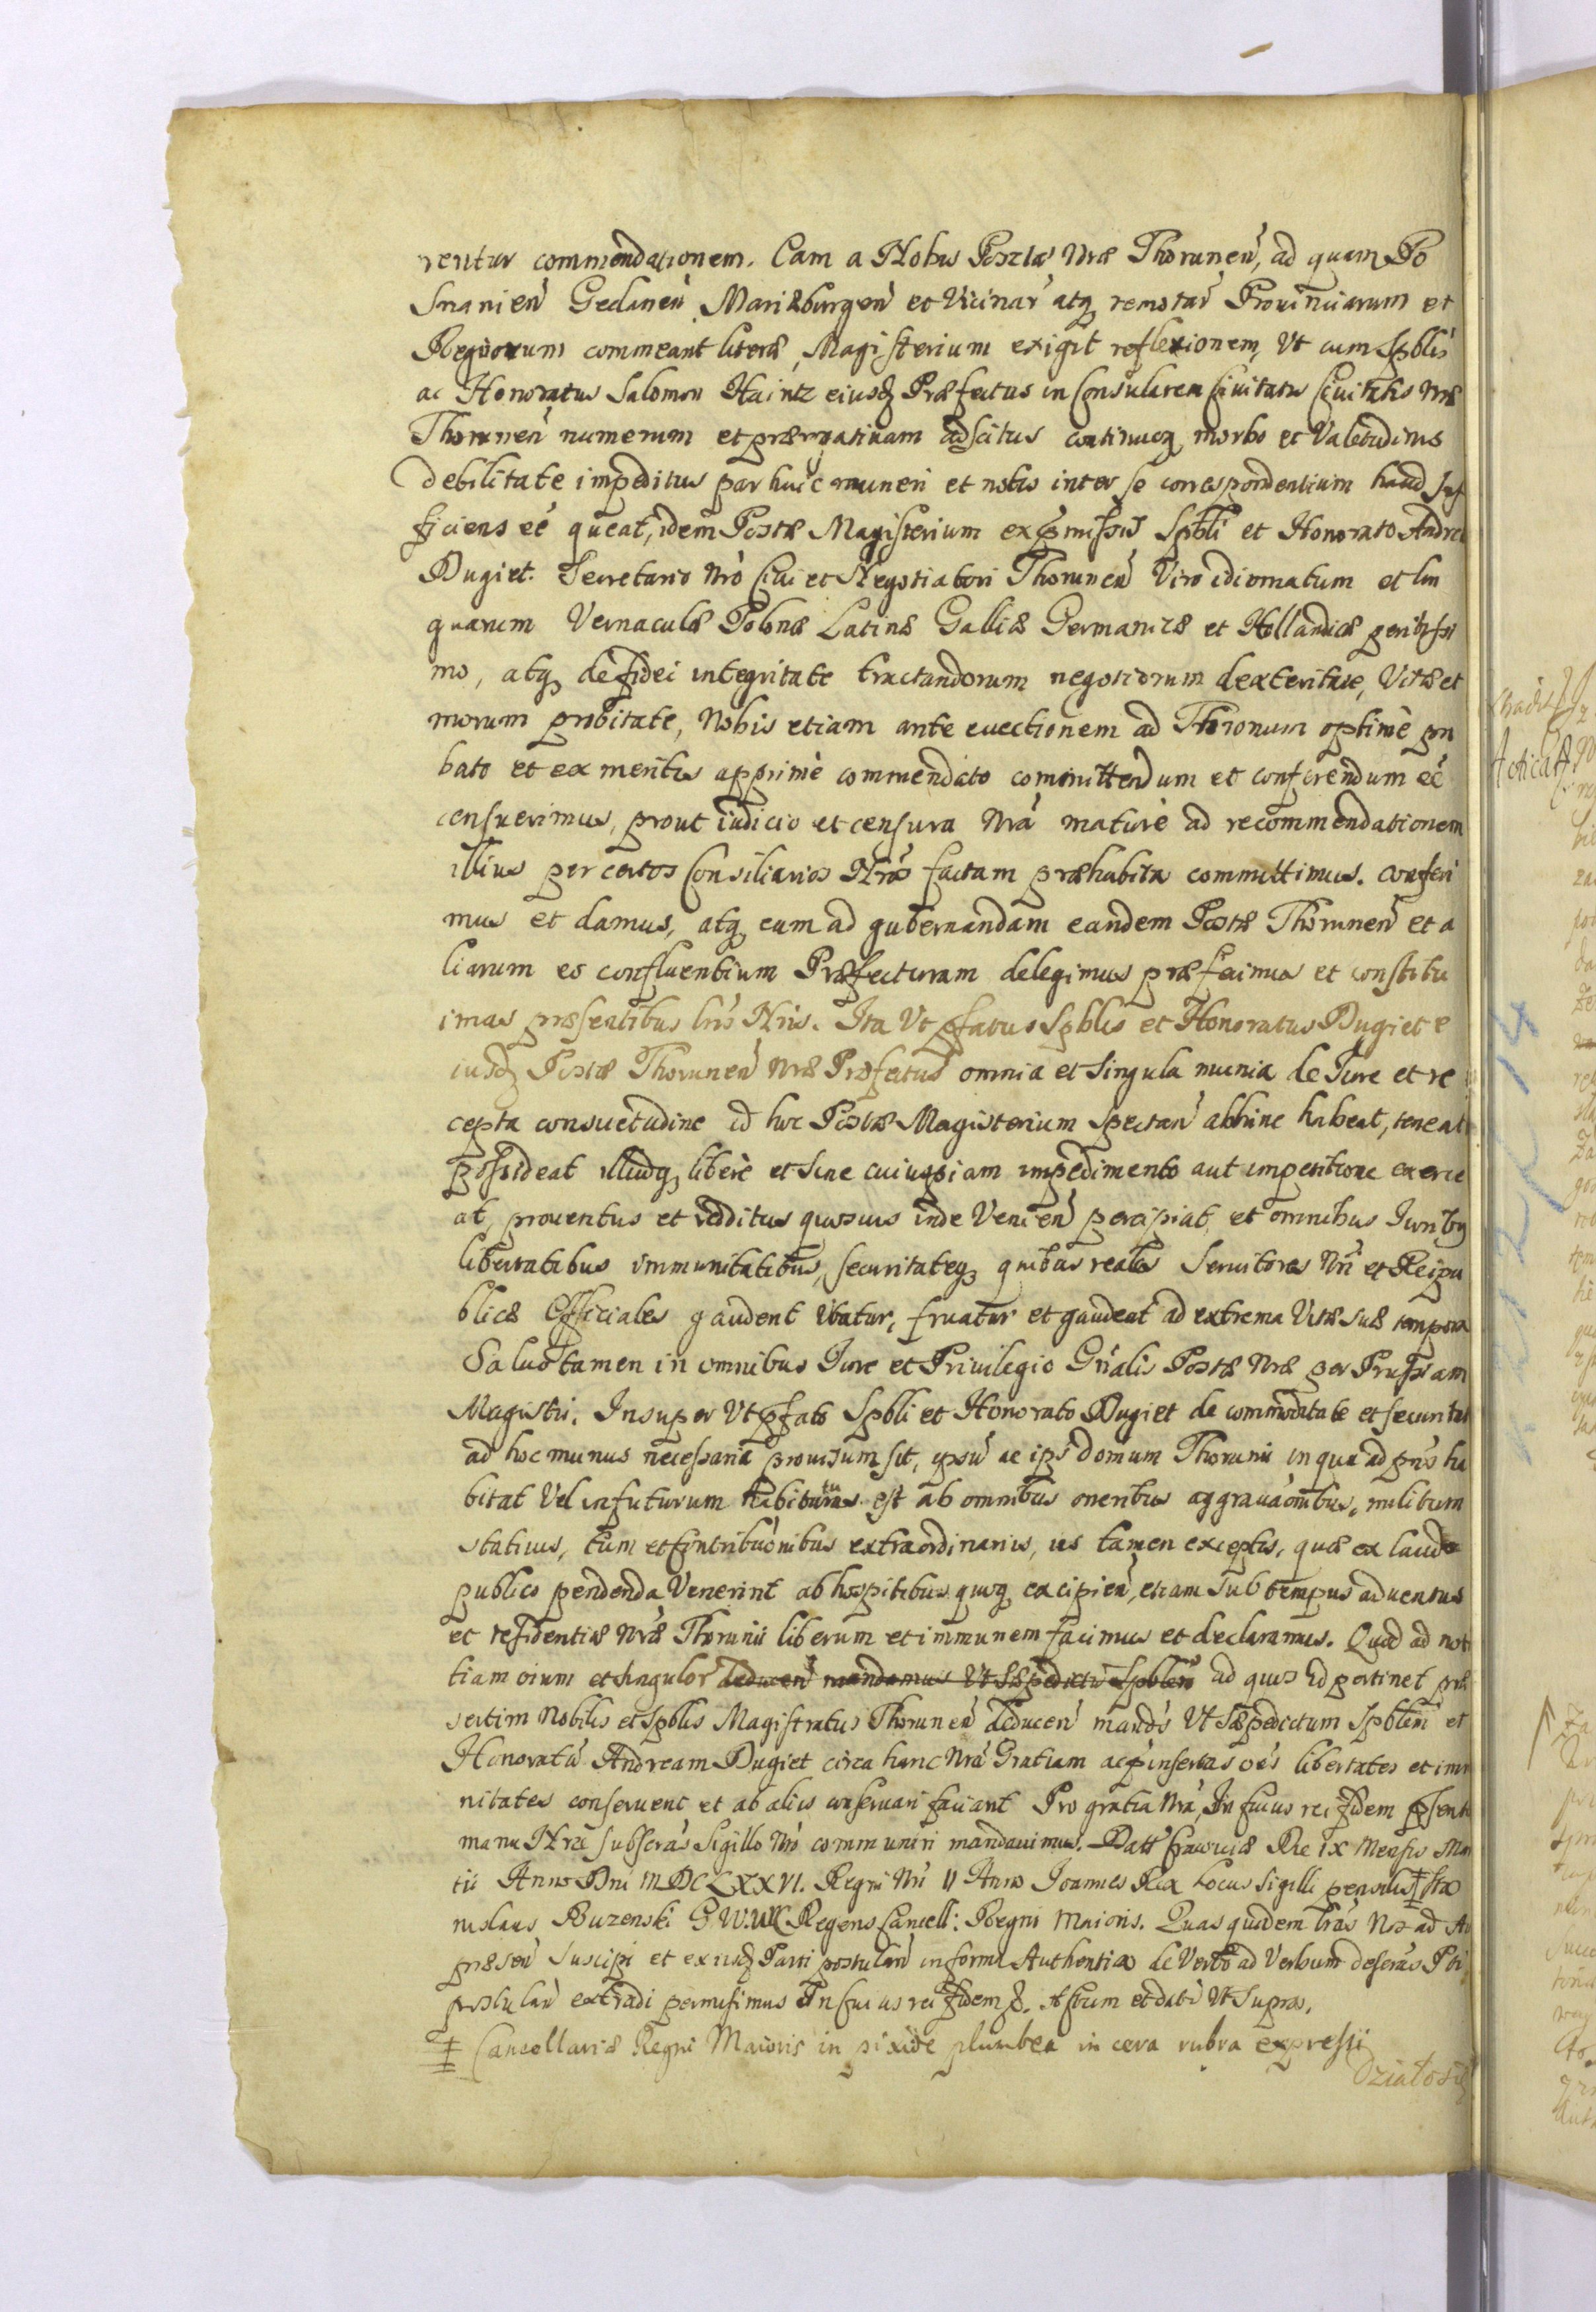 rentur commendationem. Eam a Nobis Postæ Nræ Thorunen̄, ad quam Po
snanien̄ Gedanen̄ Mariæburgen̄ et Vicinar̄ atq; remotar̄ Prouinciarum et
Regnorum commeant literæ, Magisterium exigit reflexionem, Vt cum Spblis
ac Honoratus Salomon Haintz eiusd; Præfectus in Consularem Ciuitatis Ciuitatis Nræ
Thorunen̄ numerum et prærogatiuam adscitus continuoq; morbo et Valetudinis
debilitate impeditus par huic muneri et notis inter se correspondentium haud suf
ficiens eē queat, idem Postæ Magisterium ex præmissis Spbli et Honorato Andreæ
Dugiet Secretario Nrō Ciui et Negotiatori Thorunen̄ Viro idiomatum et lin
guarum Vernaculæ Polonæ Latinæ Gallicæ Germanicæ et Hollandicæ peritissi
mo, atq; de fidei integritate tractandorum negotiorum dexteritate, Vitæ et
morum probitate, Nobis etiam ante euectionem ad Thronum optimè pro
bato et ex meritis apprimè commendato committendum et conferendum eē
censuerimus, prout iudicio et censura Nrā maturè ad recommendationem
illius per certos Consiliarios Nrōs factam præhabita committimus. conferi
mus et damus, atq; eum ad gubernandam eandem Postæ Thorunen̄ et a
liarum eo confluentium Præfecturam delegimus præfecimus et constitu
imus præsentibus lris Nris. Ita Vt pfatus Spblis et Honoratus Dugiet e
iusd; Postæ Thorunen̄ Nræ Præfectus omnia et singula munia de Jure et re
cepta consuetudine ad hoc Postæ Magisterium spectan̄ abhinc habeat, teneat
possideat illudq; liberè et sine cuiuspiam impedimento aut impetitione exerce
at, prouentus et redditus quosuis inde Venien̄ percipiat, et omnibus Juribus
libertatibus immunitatibus, securitateq; quibus reales Seruitores Nri et Reipu
blicæ Officiales gaudent Vtatur, fruatur et gaudeat ad extrema Vitæ suæ tempora
Saluo tamen in omnibus Jure et Priuilegio Gn̄alis Postæ Nræ per Prussiam
Magistri. Insuper Vt pfato Spbli et Honorato Dugiet de commoditate et securitate
ad hoc munus necessaria prouisum sit, ipsū ac ips̄ domum Thorunii in qua ad pn̄s ha
bitat Vel in futurum habitaturus est ab omnibus oneribus aggrauaōnibus, militum
statiuis, tum et Contribuōnibus extraordinariis, iis tamen exceptis, quæ ex laudo
publico pendenda Venerint ab hospitibus quoq; excipien̄, etiam sub tempus aduentus
et residentiæ Nræ Thorunii liberum et immunem facimus et declaramus. Quod ad noti
tiam oium et singulor̄ deducen̄ mandamus Vt Sæpedictū Spblem ad quos id pertinet præ
sertim Nobilis et Spblis Magistratus Thorunen̄ deducen̄ mandō Vt Sæpedictum Spblem et
Honoratū Andream Dugiet circa hanc Nrā Gratiam ac pinsertas oēs libertates et immu
nitates conseruent et ab aliis conseruari faciant Pro gratia Nrā, In Cuius rei fidem psentes
manu Nrā subscrās Sigillo Nrō communiri mandauimus. Datt Cracouiæ Die IX Mensis Mar
tii Anno Dni MDCLXXVI. Regni Nri II Anno Joannes Rex Locus Sigilli pensilis ‡ Sta
nislaus Buzenski Regens Cancell: Regni Maioris. Quas quidem lrās Nos ad Ac
præsen̄ suscipi et ex iisd; Parti postulan̄ in forma Authentica de Verbo ad Verbum descrās Pti
postulan̄ extradi permisimus In Cuius rei fidem &. Actum et datū Vt Supra.
‡ Cancellariæ Regni Maioris in pixide plumbea in cera rubra expressi